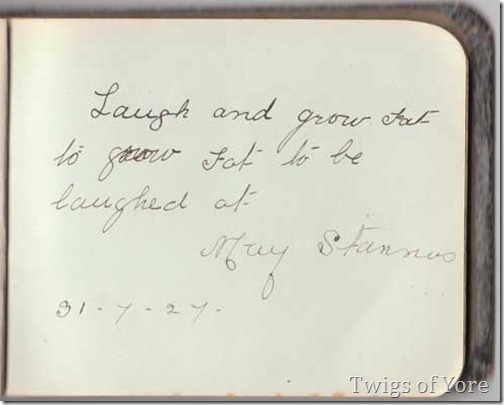 Laugh and grow Fat
to grow Fat to be
laughed at
May Stannus
31-7-27.
Twigs of Yore